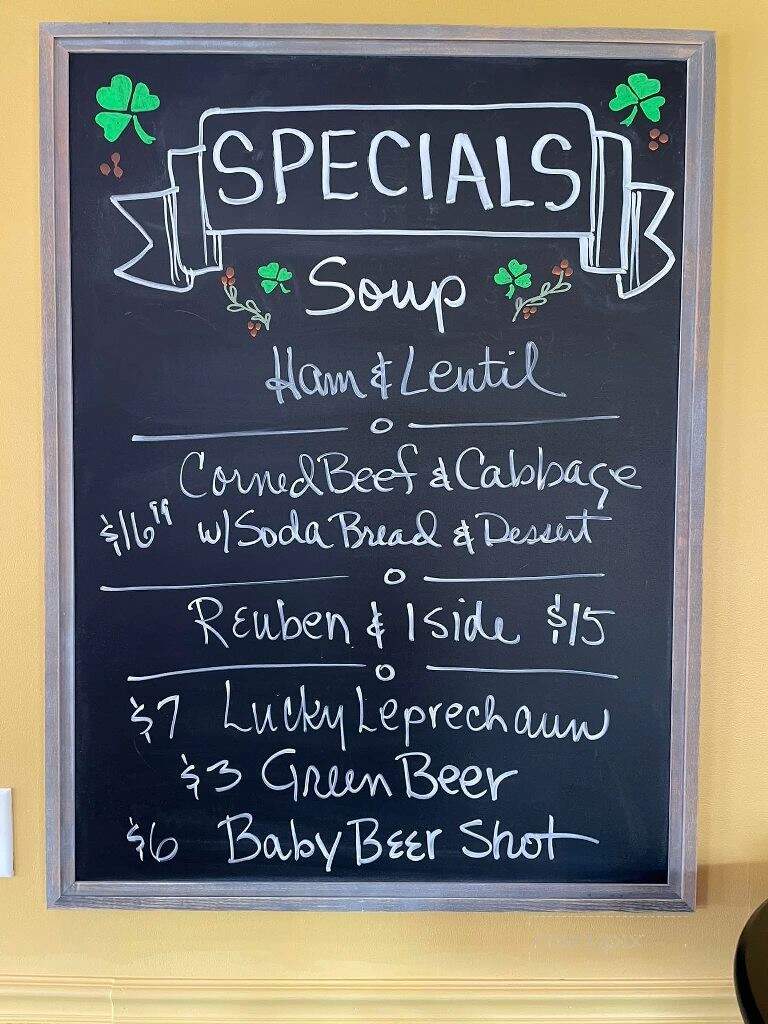 SPECIALS
Soup
Ham & Lentil
Corned Beef & Cabbage
$16⁹⁹ w/ Soda Bread & Dessert
Reuben & 1 side $15
$7 Lucky Leprechaun
$3 Green Beer
$6 Baby Beer Shot